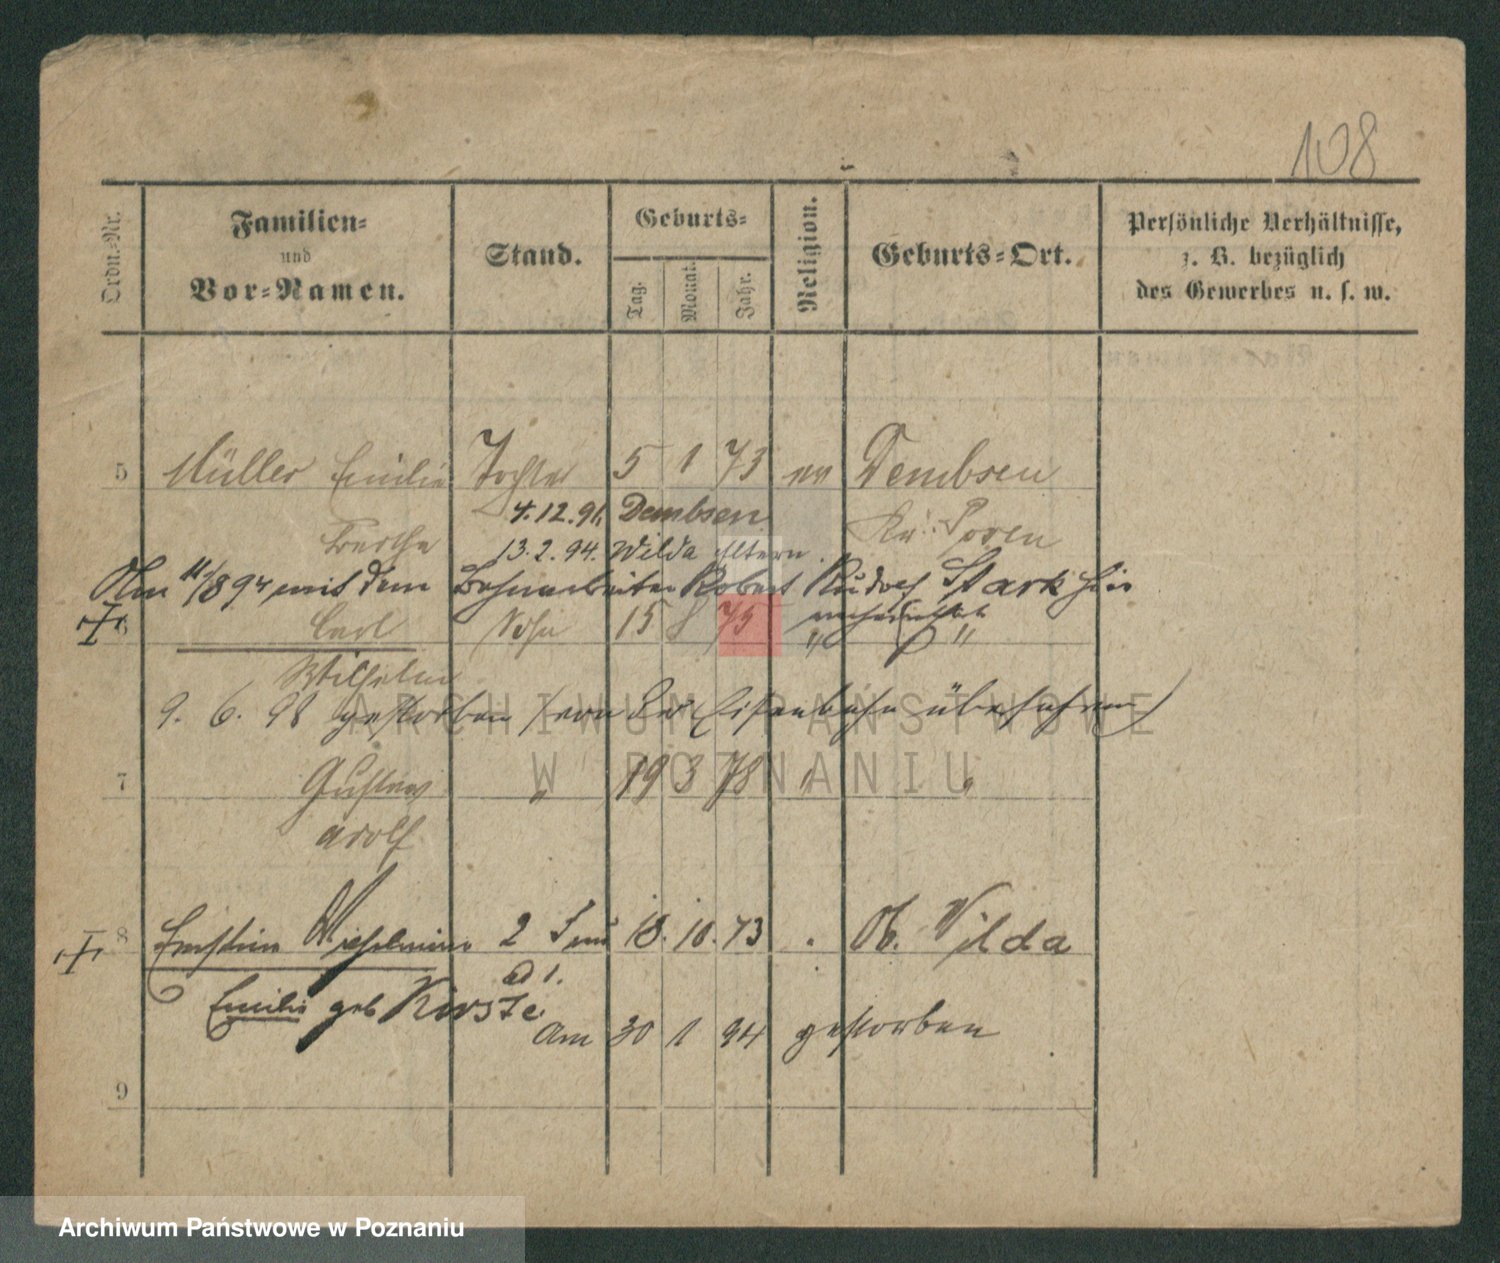 108
Ordn.-Nr.
Familien-
und
Vor-Namen.
Stand.
Geburts-
Tag.
Monat.
Jahr.
Religion.
Geburts-Ort.
Persönliche Verhältnisse,
z. B. bezüglich
des Gewerbes u. s. w.
5 Müller Emilie Tochter 5 1 73 ev Dembsen
4.12.91. Dembsen
Bertha Kr. Posen
13.2.94. Wilda Eltern
Am 11/8 94 mit dem Bahnarbeiter Robert Rudolf Stark hier
verheirathet
6 Carl Sohn 15 8 75 " "
Wilhelm
9. 6. 98 gestorben (von der Eisenbahn überfahren)
7 Gustav " 19 3 78 " "
Adolf
8 Ernstine Wilhelmine 2 Frau 18. 10. 73 Ob. Wilda
ad 1.
Emilie geb Kirste
Am 30 1 94 gestorben
9
ARCHIWUM PAŃSTWOWE
W POZNANIU
Archiwum Państwowe w Poznaniu